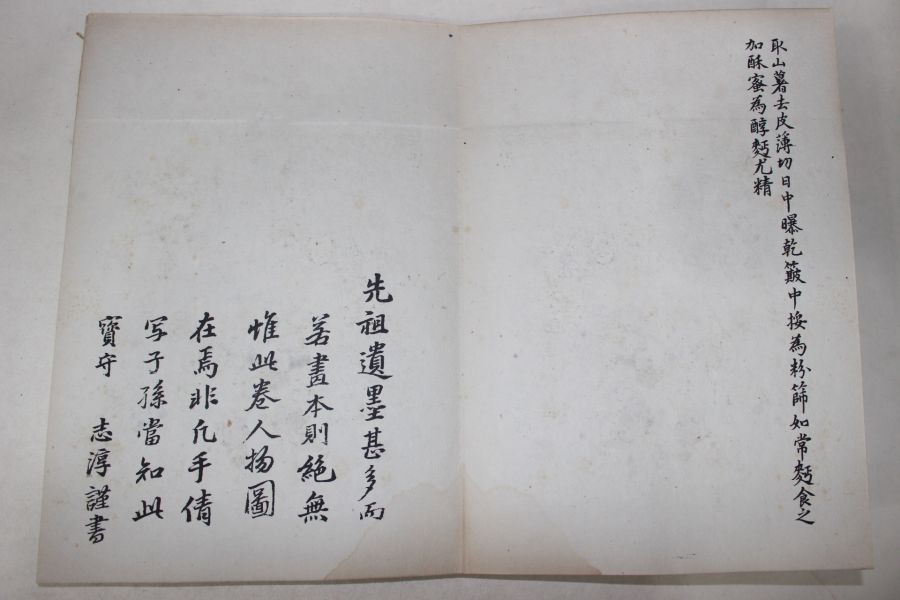 取山薯去皮薄切日中曝乾簸中挼為粉篩如常麪食之
加酥蜜為醇麪尤精
先祖遺墨甚多而
若畫本則絶無
惟此卷人物圖
在焉非凡手倩
写子孫當知此
寶守 志淳謹書